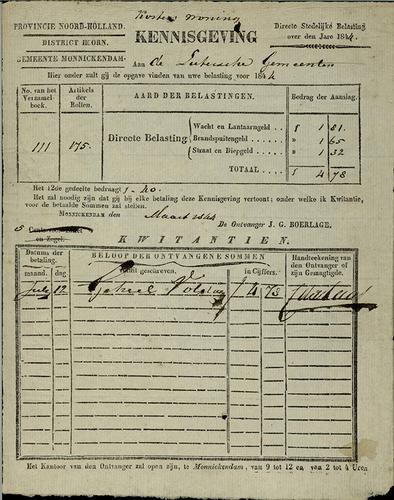 Kosters woning
PROVINCIE NOORD-HOLLAND.
DISTRICT HOORN.
GEMEENTE MONNICKENDAM.
KENNISGEVING
Directe Stedelijke Belasting
over den Jare 1844.
Aan de Luthersche Gemeente
Hier onder zult gij de opgave vinden van uwe belasting voor 1844
No. van het Verzamel-boek.
Artikels der Rollen.
AARD DER BELASTINGEN.
Bedrag der Aanslag.
111
175
Directe Belasting
Wacht en Lantaarngeld . . f 1 81.
Brandspuitengeld . . . . » 1 65
Straat en Diepgeld . . . » 1 32
TOTAAL . . . . f 4 78
Het 12de gedeelte bedraagt f -.40.
Het zal noodig zijn dat gij bij elke betaling deze Kennisgeving vertoont; onder welke ik Kwitantie,
voor de betaalde Sommen zal stellen.
MONNICKENDAM den Maart 1844
De Ontvanger J. G. BOERLAGE.
5 Cents
en Zegel.
KWITANTIEN.
Datums der betaling.
BELOOP DER ONTVANGENE SOMMEN
Handteekening van den Ontvanger of zijn Gemagtigde.
maand.
dag.
Voluit geschreven.
in Cijffers.
July 12 Geheel Voldaan f 4 78
Het Kantoor van den Ontvanger zal open zijn, te Monnickendam, van 9 tot 12 en van 2 tot 4 Uren